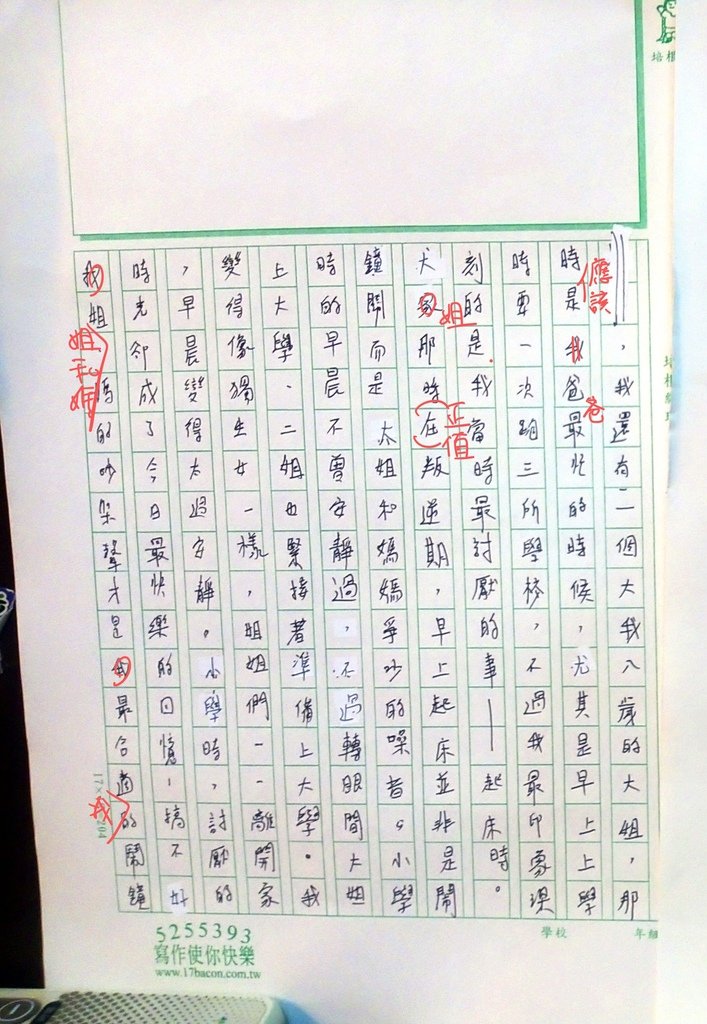 ，我還有二個大我八歲的大姐，那
時是我爸最忙的時候，尤其是早上上學
時要一次跑三所學校，不過我最印象深
刻的是我當時最討厭的事——起床時。
大家那時在叛逆期，早上起床並非是鬧
鐘鬧而是大姐和媽媽爭吵的噪音。小學
時的早晨不曾安靜過，不過轉眼間大姐
上大學、二姐也緊接著準備上大學。我
變得像獨生女一樣，姐姐們一一離開家
，早晨變得太過安靜。小學時，討厭的
時光卻成了今日最快樂的回憶，搞不好
我姐媽的吵架聲才是我最合適的鬧鐘
應該
爸
姐
正值
姐和媽
我
培根
學校
年級
5255393
寫作使你快樂
www.17bacon.com.tw